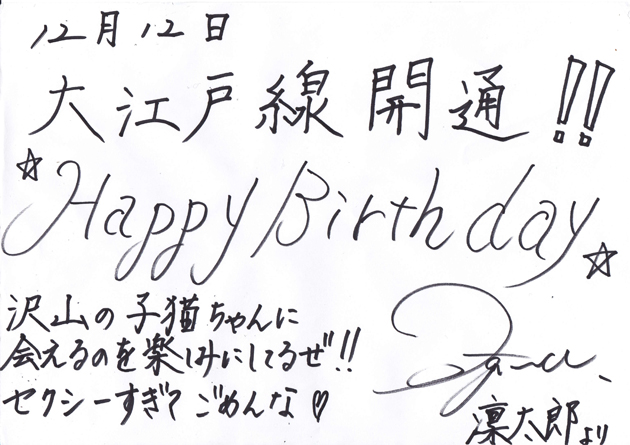 12月12日
大江戸線開通!!
☆Happy Birthday☆
沢山の子猫ちゃんに
会えるのを楽しみにしてるぜ!!
セクシーすぎてごめんな♡
凛太郎より